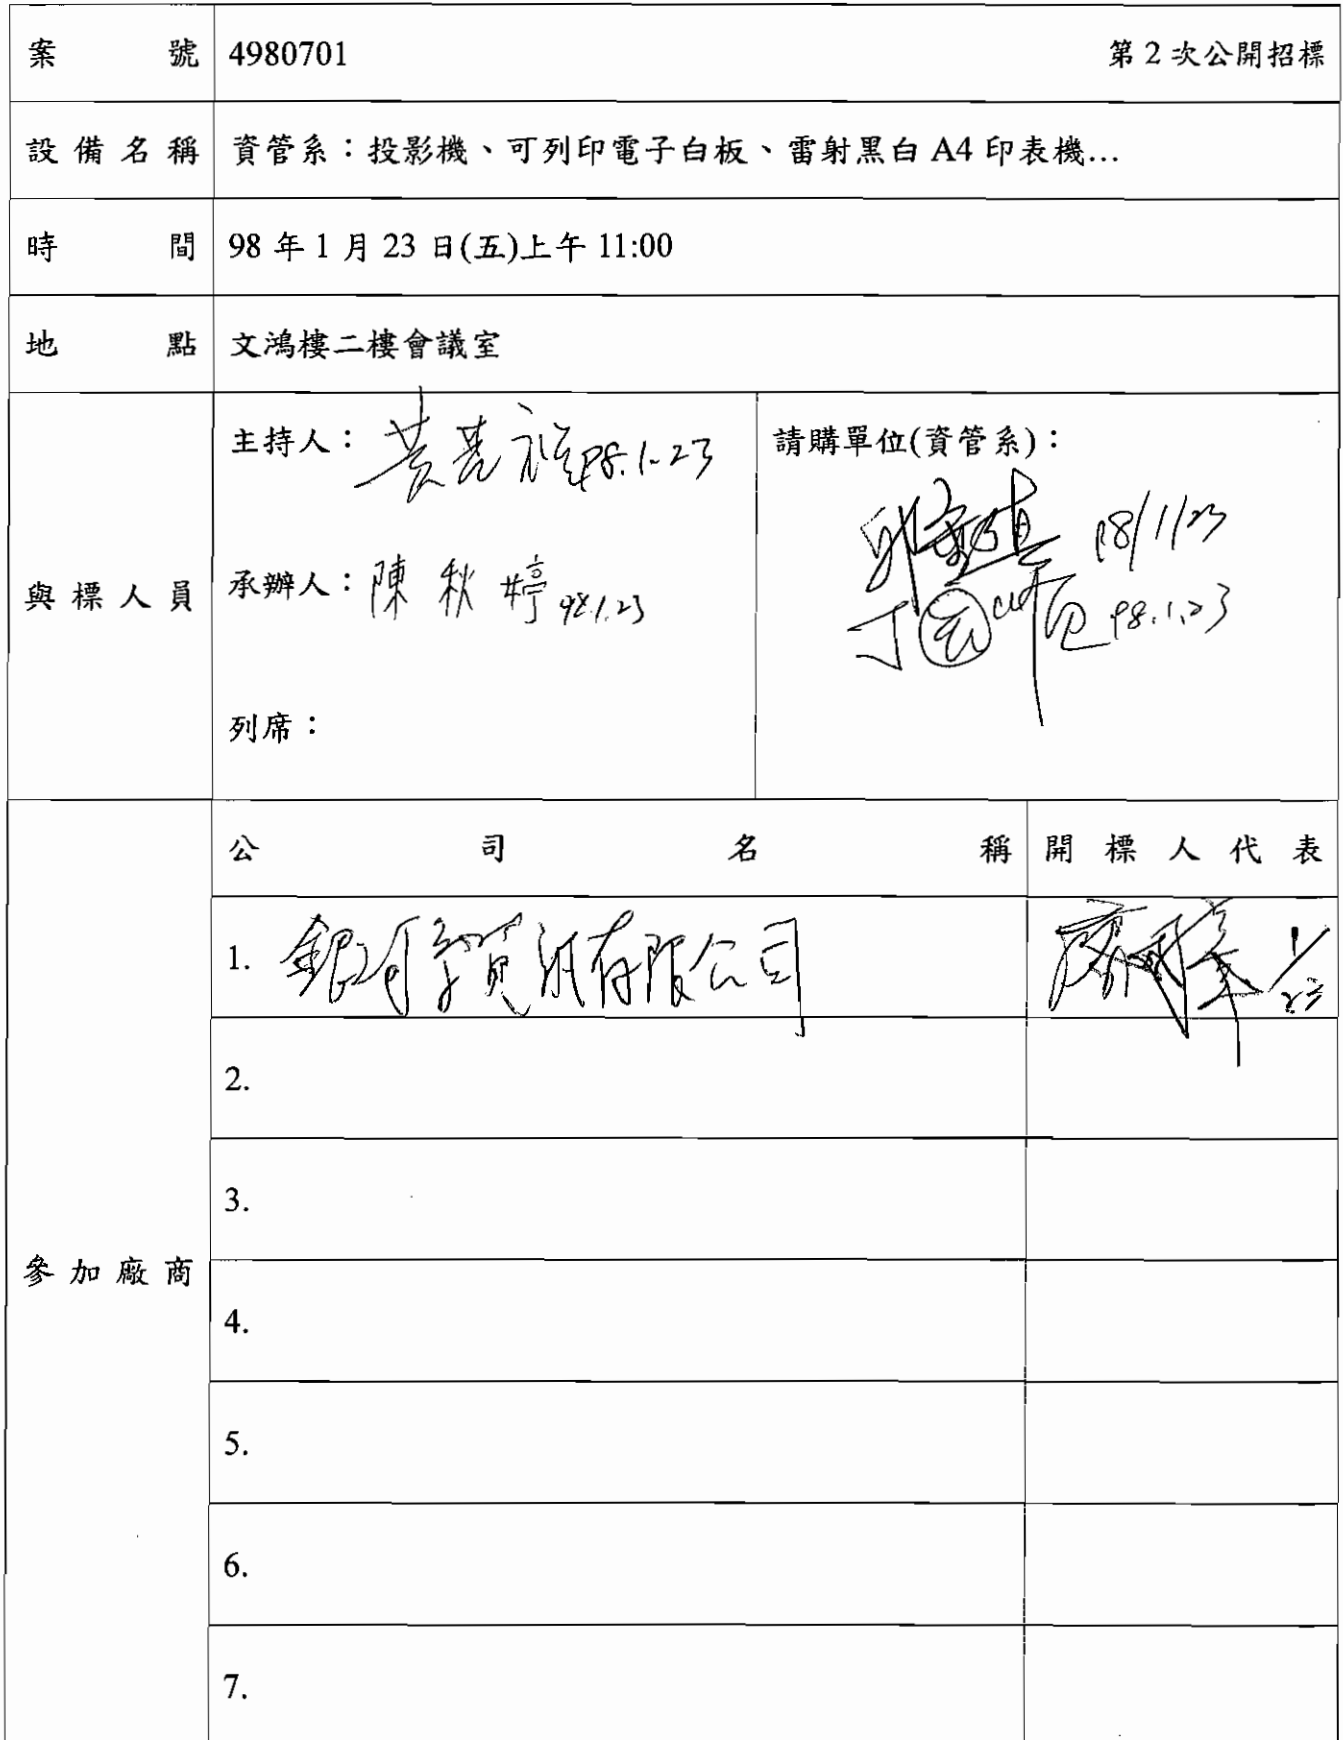 案號 4980701 第2次公開招標
設備名稱 資管系：投影機、可列印電子白板、雷射黑白 A4 印表機…
時間 98 年 1 月 23 日(五)上午 11:00
地點 文鴻樓二樓會議室
與標人員
主持人： 98.1.23
承辦人：陳秋婷 98.1.23
列席：
請購單位(資管系)：
98/1/23
丁 98.1.23
參加廠商
公司名稱 開標人代表
1. 銀河資訊有限公司 1/23
2.
3.
4.
5.
6.
7.